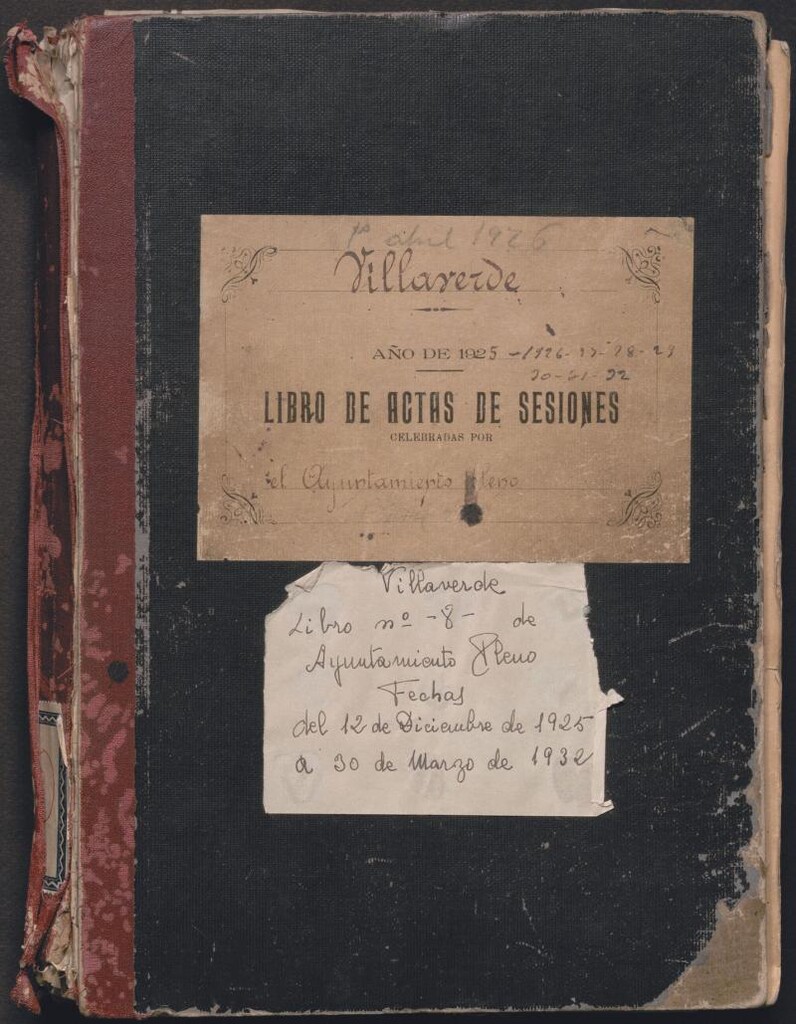 1º abril 1926
Villaverde
AÑO DE 1925 - 1926-27-28-29
30-31-32
LIBRO DE ACTAS DE SESIONES
CELEBRADAS POR
el Ayuntamiento Pleno
Villaverde
Libro nº -8- de
Ayuntamiento Pleno
Fechas
del 12 de Diciembre de 1925
a 30 de Marzo de 1932